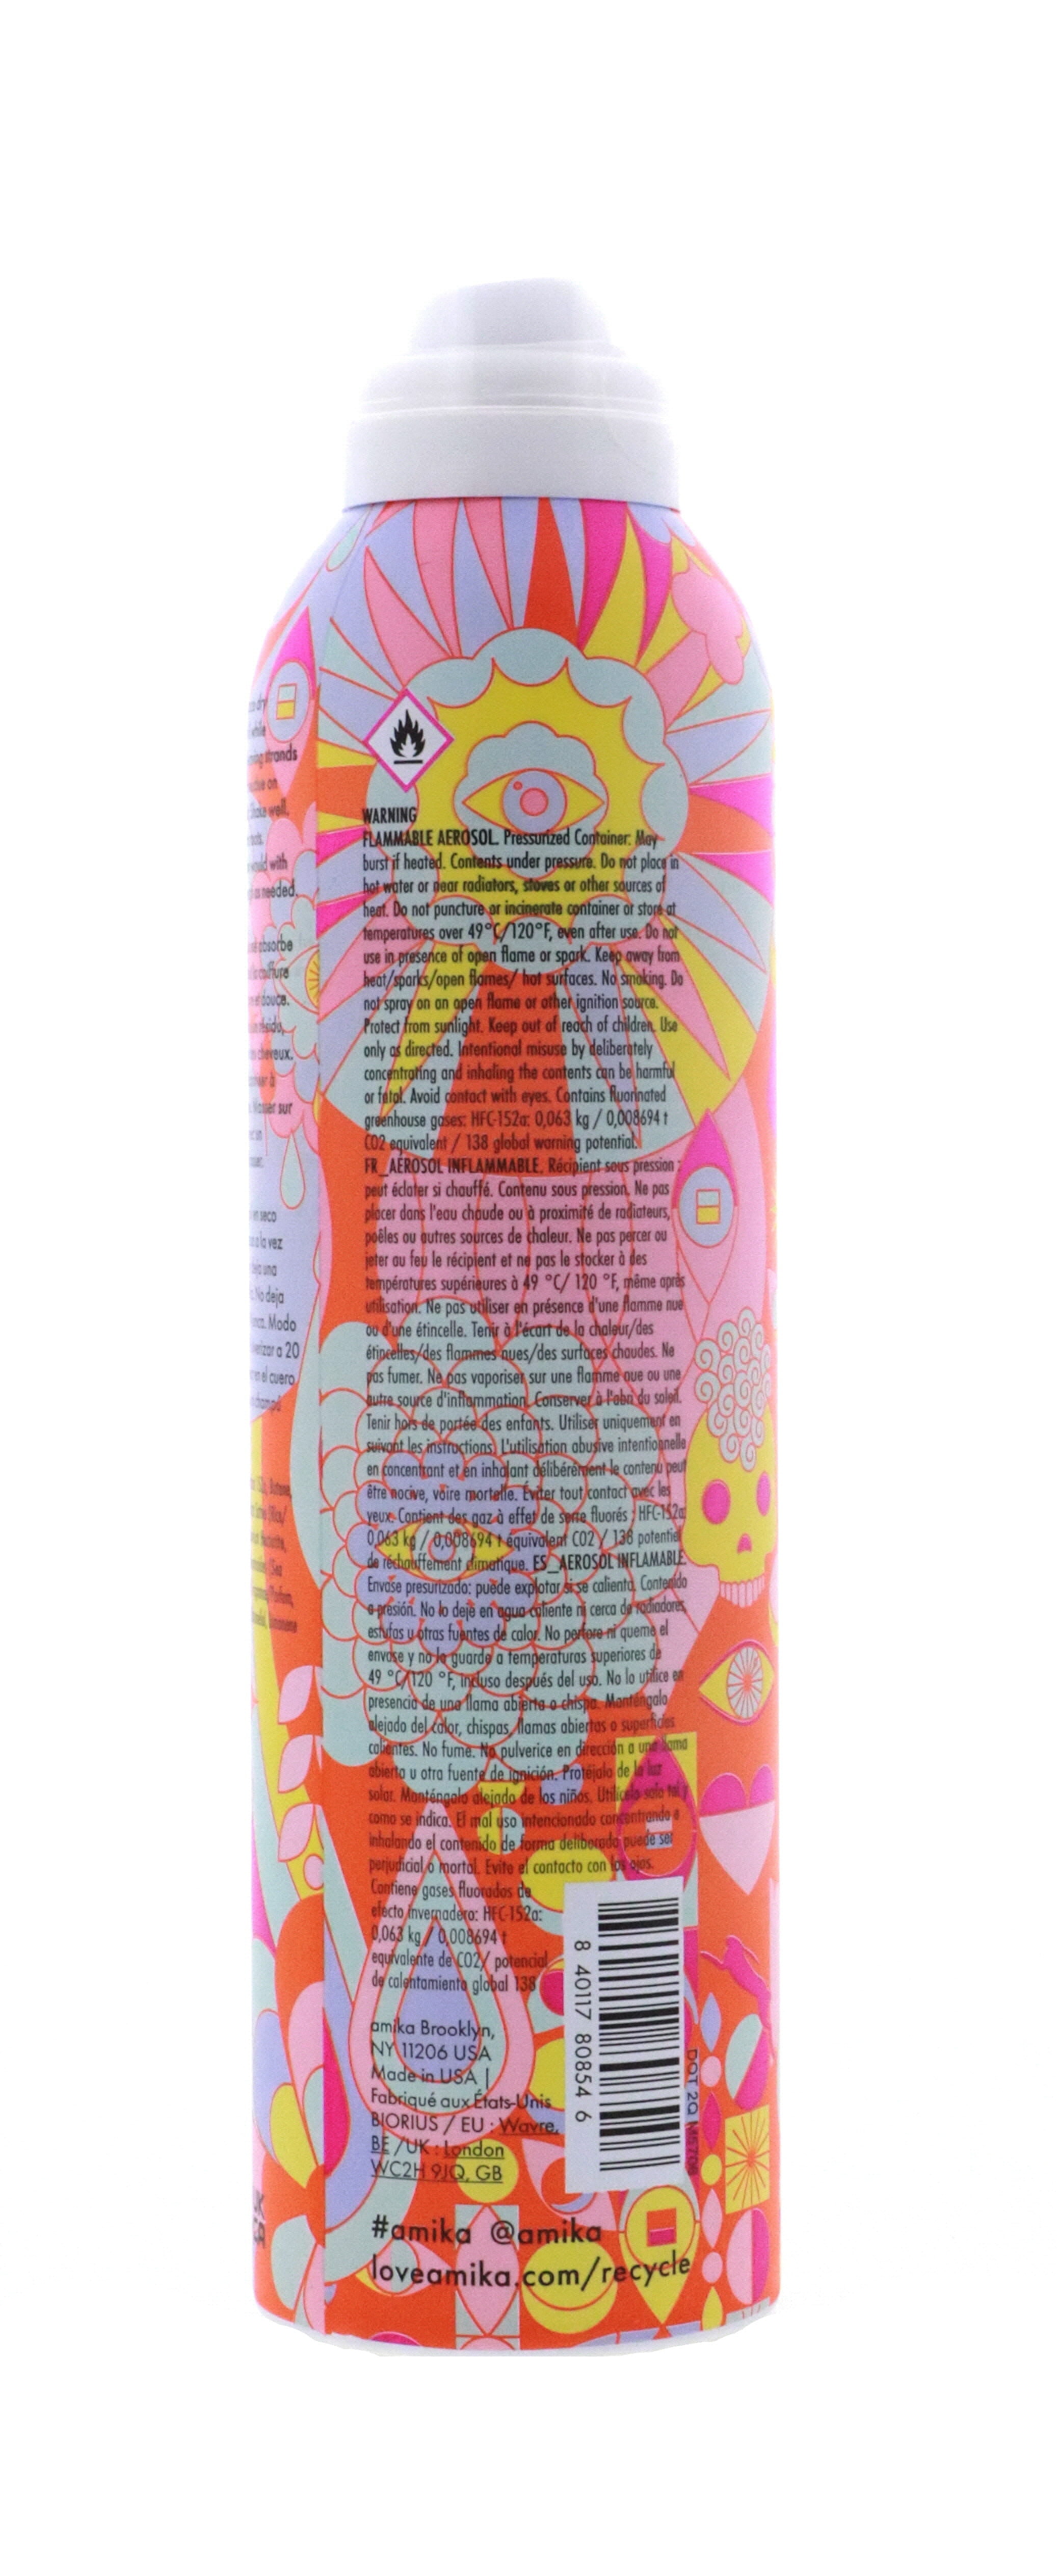 strands
on
well.
with
as needed.
absorbe
coiffure
et douce.
résidu,
cheveux.
à
Masser sur
en seco
a la vez
una
No deja
Modo
a 20
en el cuero
Butane,
UK
CA
WARNING
FLAMMABLE AEROSOL. Pressurized Container: May
burst if heated. Contents under pressure. Do not place in
hot water or near radiators, stoves or other sources of
heat. Do not puncture or incinerate container or store at
temperatures over 49°C/120°F, even after use. Do not
use in presence of open flame or spark. Keep away from
heat/sparks/open flames/ hot surfaces. No smoking. Do
not spray on an open flame or other ignition source.
Protect from sunlight. Keep out of reach of children. Use
only as directed. Intentional misuse by deliberately
concentrating and inhaling the contents can be harmful
or fatal. Avoid contact with eyes. Contains fluorinated
greenhouse gases: HFC-152a: 0,063 kg / 0,008694 t
CO2 equivalent / 138 global warning potential.
FR_AÉROSOL INFLAMMABLE. Récipient sous pression :
peut éclater si chauffé. Contenu sous pression. Ne pas
placer dans l'eau chaude ou à proximité de radiateurs,
poêles ou autres sources de chaleur. Ne pas percer ou
jeter au feu le récipient et ne pas le stocker à des
températures supérieures à 49 °C/ 120 °F, même après
utilisation. Ne pas utiliser en présence d'une flamme nue
ou d'une étincelle. Tenir à l'écart de la chaleur/des
étincelles/des flammes nues/des surfaces chaudes. Ne
pas fumer. Ne pas vaporiser sur une flamme nue ou une
autre source d'inflammation. Conserver à l'abri du soleil.
Tenir hors de portée des enfants. Utiliser uniquement en
suivant les instructions. L'utilisation abusive intentionnelle
en concentrant et en inhalant délibérément le contenu peut
être nocive, voire mortelle. Éviter tout contact avec les
yeux. Contient des gaz à effet de serre fluorés : HFC-152a:
0,063 kg / 0,008694 t équivalent CO2 / 138 potentiel
de réchauffement climatique. ES_AEROSOL INFLAMABLE.
Envase presurizado: puede explotar si se calienta. Contenido
a presión. No lo deje en agua caliente ni cerca de radiadores,
estufas u otras fuentes de calor. No perfore ni queme el
envase y no lo guarde a temperaturas superiores de
49 °C/120 °F, incluso después del uso. No lo utilice en
presencia de una llama abierta o chispa. Manténgalo
alejado del calor, chispas, llamas abiertas o superficies
calientes. No fume. No pulverice en dirección a una llama
abierta u otra fuente de ignición. Protéjalo de la luz
solar. Manténgalo alejado de los niños. Utilícelo solo tal y
como se indica. El mal uso intencionado concentrando e
inhalando el contenido de forma deliberada puede ser
perjudicial o mortal. Evite el contacto con los ojos.
Contiene gases fluorados de
efecto invernadero: HFC-152a:
0,063 kg / 0,008694 t
equivalente de CO2/ potencial
de calentamiento global 138
amika Brooklyn,
NY 11206 USA
Made in USA |
Fabriqué aux États-Unis
BIORIUS / EU : Wavre,
BE /UK : London
WC2H 9JQ, GB
8 40117 80854 6
DOT 2Q
#amika @amika
loveamika.com/recycle